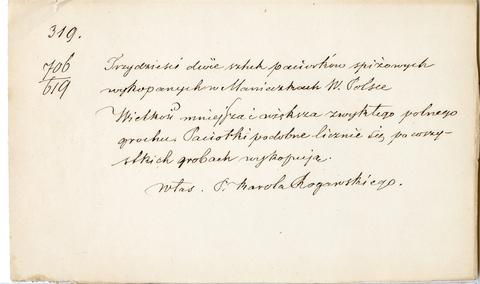 319.
706
619
Trzydzieści dwie sztuk paciorków spiżowych
wykopanych w Maniaczkach W. Polsce
Wielkość mniejsza i większa zwykłego polnego
grochu. Paciorki podobne licznie się, po wszy-
stkich grobach wykopują.
Włas. P. Karola Rogawskiego.